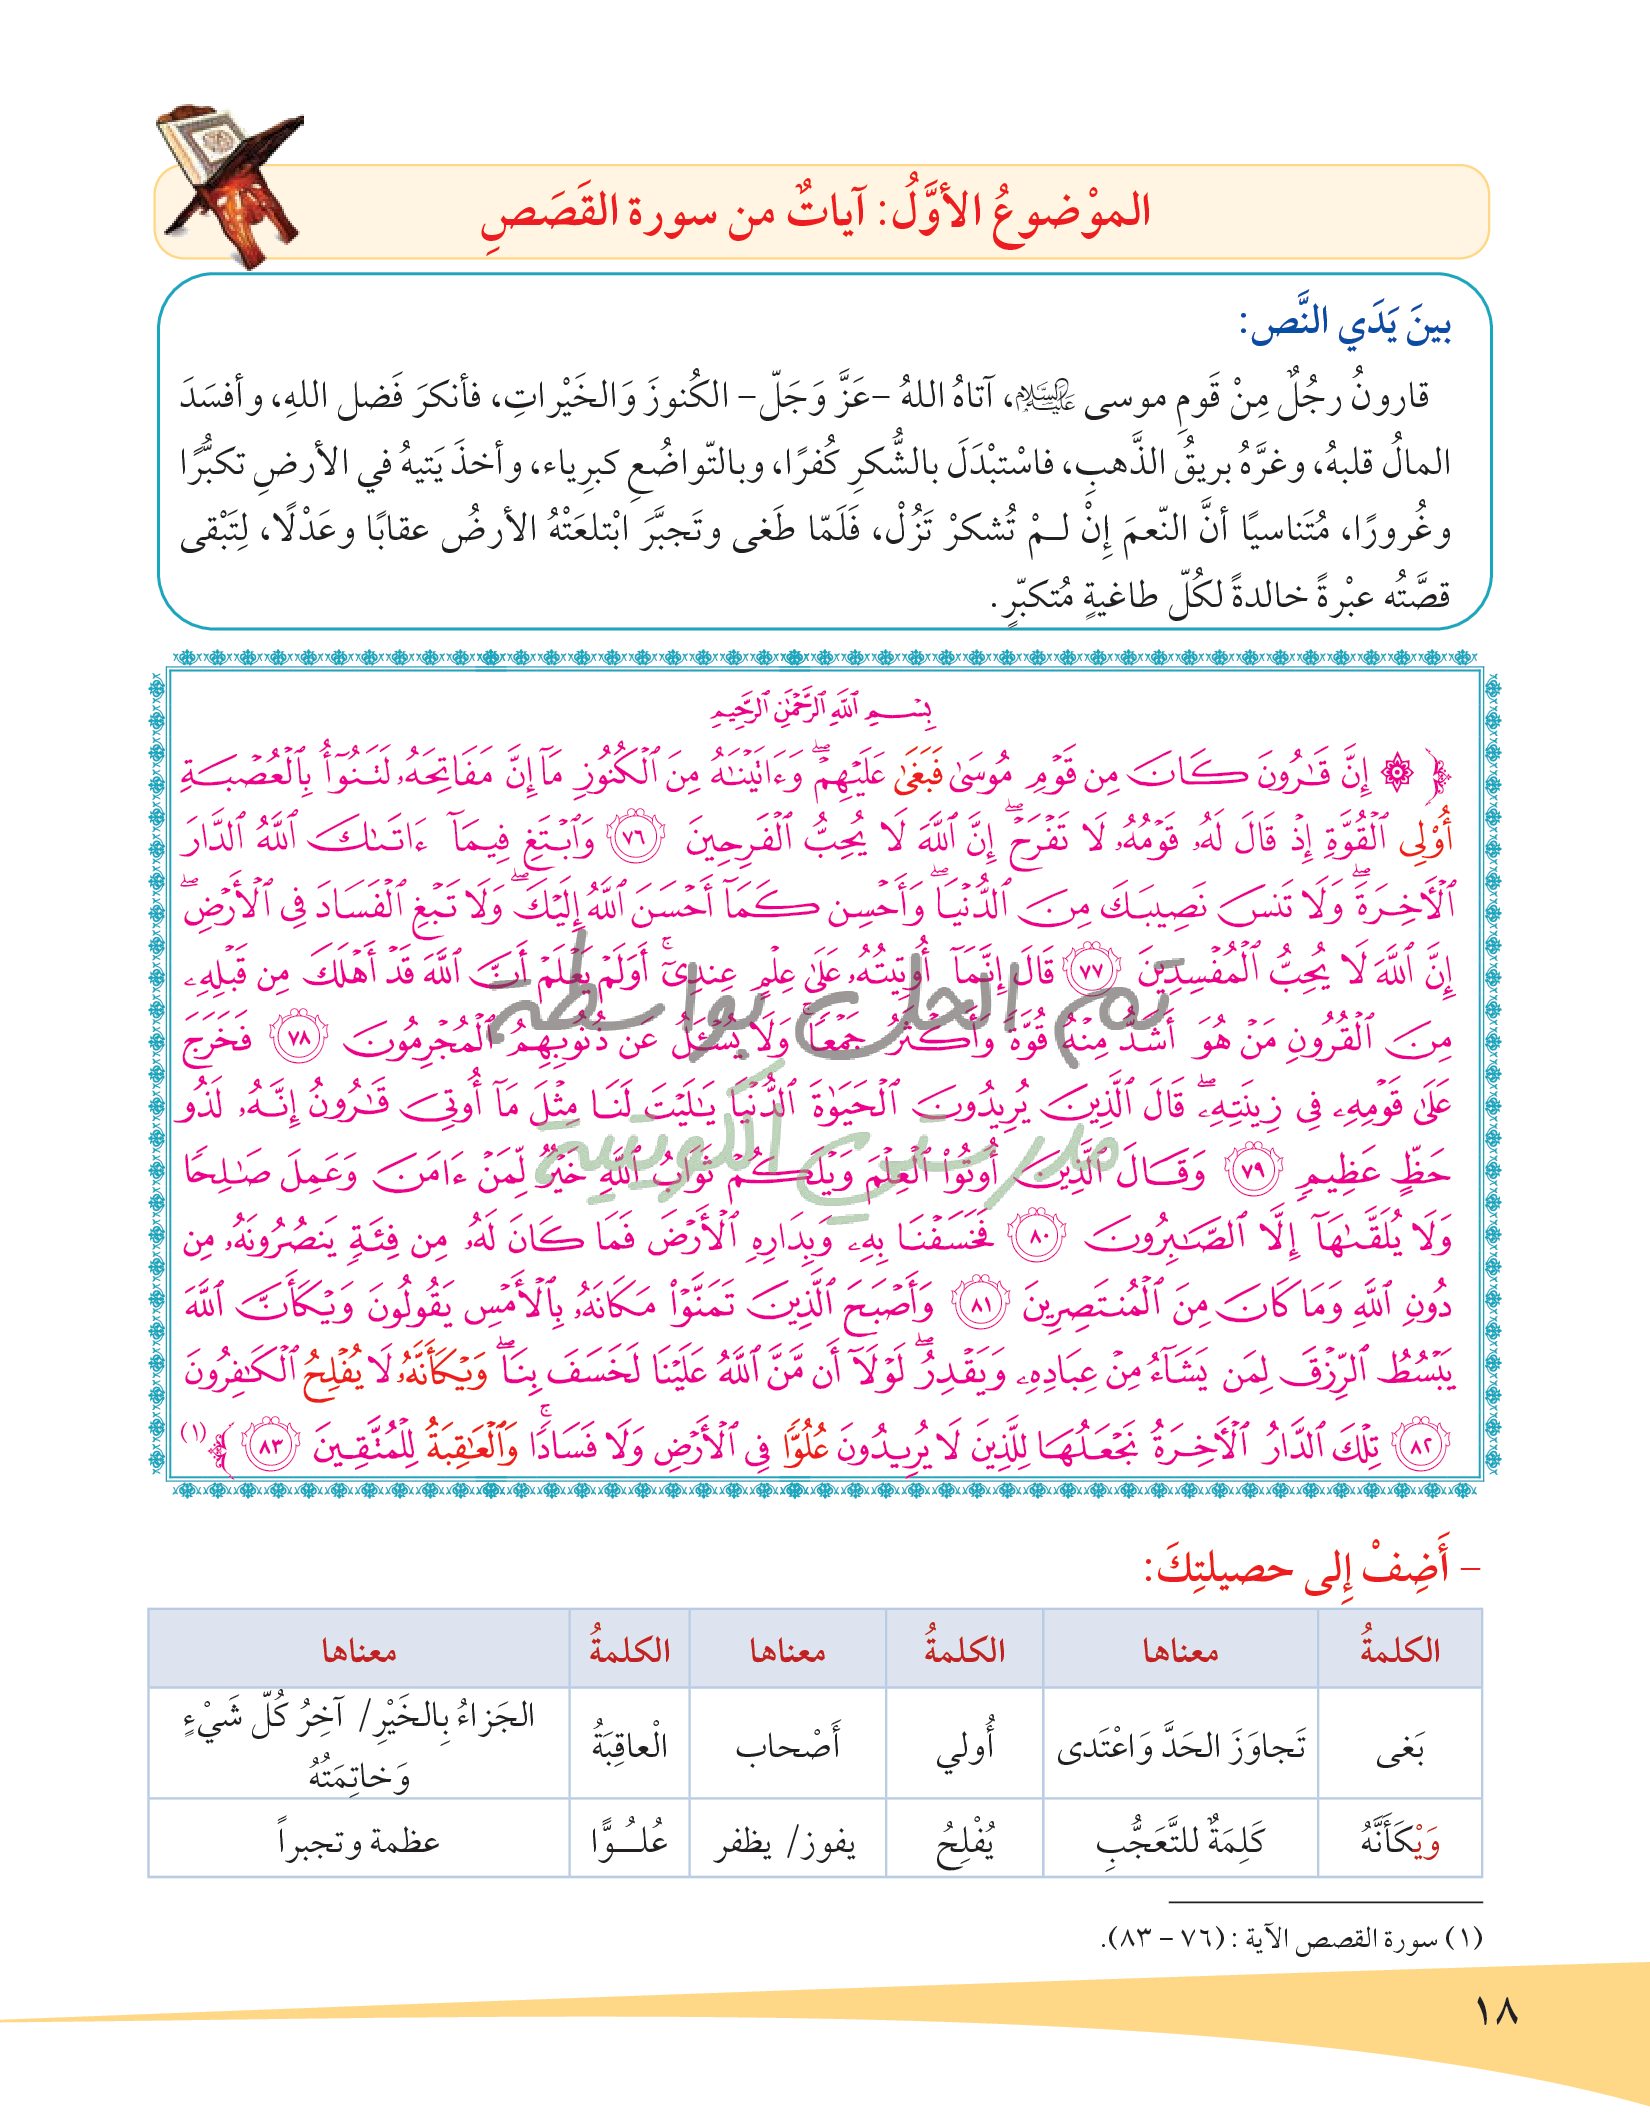 الموْضوعُ الأوَّلُ: آياتٌ من سورة القَصَصِ
بينَ يَدَي النَّص:
قارونُ رجُلٌ مِنْ قَومِ موسى عليه السلام، آتاهُ اللهُ –عَزَّ وَجَلّ– الكُنوزَ وَالخَيْراتِ، فأنكرَ فَضل اللهِ، وأفسَدَ
المالُ قلبهُ، وغرَّهُ بريقُ الذَّهبِ، فاسْتبْدَلَ بالشُّكرِ كُفرًا، وبالتّواضُعِ كبرِياء، وأخذَ يَتيهُ في الأرضِ تكبُّرًا
وغُرورًا، مُتَناسيًا أنَّ النّعمَ إِنْ لـمْ تُشكرْ تَزُلْ، فَلَمّا طَغى وتَجبَّرَ ابْتلعَتْهُ الأرضُ عقابًا وعَدْلًا، لِتَبْقى
قصَّتُه عبْرةً خالدةً لكُلّ طاغيةٍ مُتكبّرٍ.
بِسْمِ ٱللَّهِ ٱلرَّحْمَٰنِ ٱلرَّحِيمِ
﴿ ۞ إِنَّ قَٰرُونَ كَانَ مِن قَوْمِ مُوسَىٰ فَبَغَىٰ عَلَيْهِمْ ۖ وَءَاتَيْنَٰهُ مِنَ ٱلْكُنُوزِ مَآ إِنَّ مَفَاتِحَهُۥ لَتَنُوٓأُ بِٱلْعُصْبَةِ
أُو۟لِى ٱلْقُوَّةِ إِذْ قَالَ لَهُۥ قَوْمُهُۥ لَا تَفْرَحْ ۖ إِنَّ ٱللَّهَ لَا يُحِبُّ ٱلْفَرِحِينَ ٧٦ وَٱبْتَغِ فِيمَآ ءَاتَىٰكَ ٱللَّهُ ٱلدَّارَ
ٱلْءَاخِرَةَ ۖ وَلَا تَنسَ نَصِيبَكَ مِنَ ٱلدُّنْيَا ۖ وَأَحْسِن كَمَآ أَحْسَنَ ٱللَّهُ إِلَيْكَ ۖ وَلَا تَبْغِ ٱلْفَسَادَ فِى ٱلْأَرْضِ ۖ
إِنَّ ٱللَّهَ لَا يُحِبُّ ٱلْمُفْسِدِينَ ٧٧ قَالَ إِنَّمَآ أُوتِيتُهُۥ عَلَىٰ عِلْمٍ عِندِىٓ ۚ أَوَلَمْ يَعْلَمْ أَنَّ ٱللَّهَ قَدْ أَهْلَكَ مِن قَبْلِهِۦ
مِنَ ٱلْقُرُونِ مَنْ هُوَ أَشَدُّ مِنْهُ قُوَّةً وَأَكْثَرُ جَمْعًا ۚ وَلَا يُسْـَٔلُ عَن ذُنُوبِهِمُ ٱلْمُجْرِمُونَ ٧٨ فَخَرَجَ
عَلَىٰ قَوْمِهِۦ فِى زِينَتِهِۦ ۖ قَالَ ٱلَّذِينَ يُرِيدُونَ ٱلْحَيَوٰةَ ٱلدُّنْيَا يَٰلَيْتَ لَنَا مِثْلَ مَآ أُوتِىَ قَٰرُونُ إِنَّهُۥ لَذُو
حَظٍّ عَظِيمٍ ٧٩ وَقَالَ ٱلَّذِينَ أُوتُوا۟ ٱلْعِلْمَ وَيْلَكُمْ ثَوَابُ ٱللَّهِ خَيْرٌ لِّمَنْ ءَامَنَ وَعَمِلَ صَٰلِحًا
وَلَا يُلَقَّىٰهَآ إِلَّا ٱلصَّٰبِرُونَ ٨٠ فَخَسَفْنَا بِهِۦ وَبِدَارِهِ ٱلْأَرْضَ فَمَا كَانَ لَهُۥ مِن فِئَةٍ يَنصُرُونَهُۥ مِن
دُونِ ٱللَّهِ وَمَا كَانَ مِنَ ٱلْمُنتَصِرِينَ ٨١ وَأَصْبَحَ ٱلَّذِينَ تَمَنَّوْا۟ مَكَانَهُۥ بِٱلْأَمْسِ يَقُولُونَ وَيْكَأَنَّ ٱللَّهَ
يَبْسُطُ ٱلرِّزْقَ لِمَن يَشَآءُ مِنْ عِبَادِهِۦ وَيَقْدِرُ ۖ لَوْلَآ أَن مَّنَّ ٱللَّهُ عَلَيْنَا لَخَسَفَ بِنَا ۖ وَيْكَأَنَّهُۥ لَا يُفْلِحُ ٱلْكَٰفِرُونَ
٨٢ تِلْكَ ٱلدَّارُ ٱلْءَاخِرَةُ نَجْعَلُهَا لِلَّذِينَ لَا يُرِيدُونَ عُلُوًّا فِى ٱلْأَرْضِ وَلَا فَسَادًا ۚ وَٱلْعَٰقِبَةُ لِلْمُتَّقِينَ ٨٣ ﴾ (١)
تم الحل بواسطة
مدرستي الكويتية
– أَضِفْ إِلى حصيلتِكَ:
الكلمةُ معناها الكلمةُ معناها الكلمةُ معناها
بَغى تَجاوَزَ الحَدَّ وَاعْتَدى أُولي أَصْحاب الْعاقِبَةُ الجَزاءُ بِالخَيْرِ/ آخِرُ كُلّ شَيْءٍ
وَخاتِمَتُهُ
وَيْكَأَنَّهُ كَلِمَةٌ للتَّعَجُّبِ يُفْلِحُ يفوز/ يظفر عُلـُـوًّا عظمة وتجبراً
(١) سورة القصص الآية : (٧٦ – ٨٣).
١٨